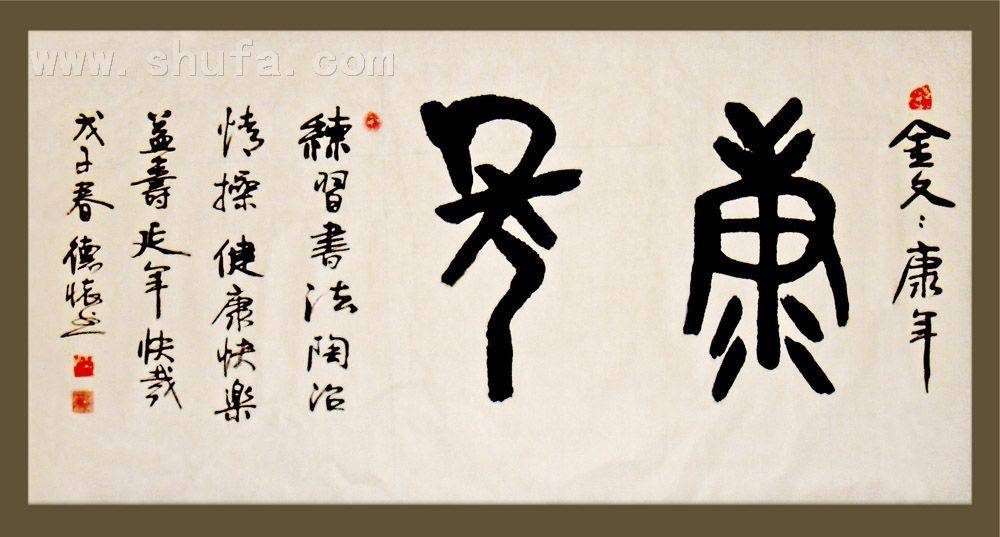 www.shufa.com
金文：康年
康年
練習書法陶冶
情操健康快樂
益壽延年快哉
戊子春 德懷書